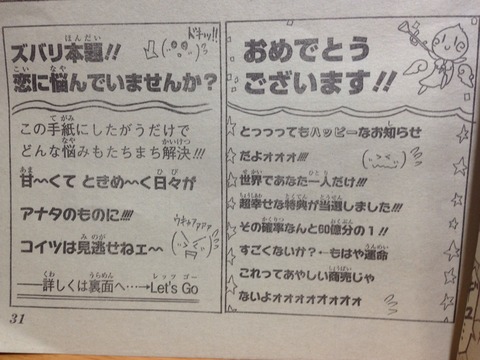 おめでとう
ございます!!
とっっってもハッピーなお知らせ
だよォォォ!!!
世界であなた一人だけ!!!
超幸せな特典が当選しました!!!
その確率なんと60億分の1!!
すごくないか?‥もはや運命
これってあやしい商売じゃ
ないよォォォォォォォォ
ズバリ本題!!
ドキッ!!
恋に悩んでいませんか?
この手紙にしたがうだけで
どんな悩みもたちまち解決!!!
甘〜くて ときめ〜く日々が
アナタのものに!!!!
ウキャアァァァ
コイツは見逃せねェ〜
──詳しくは裏面へ‥‥→Let's Go
31